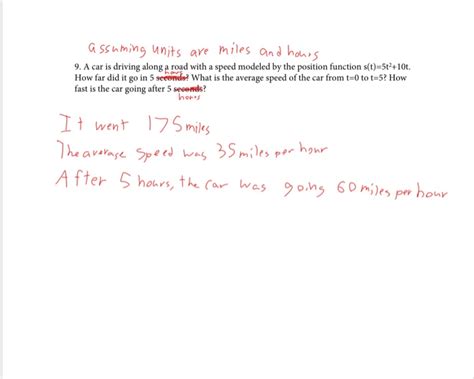 assuming units are miles and hours
9. A car is driving along a road with a speed modeled by the position function s(t)=5t²+10t.
hours
How far did it go in 5 seconds? What is the average speed of the car from t=0 to t=5? How
fast is the car going after 5 seconds?
hours
It went 175 miles
The average speed was 35 miles per hour
After 5 hours, the car was going 60 miles per hour